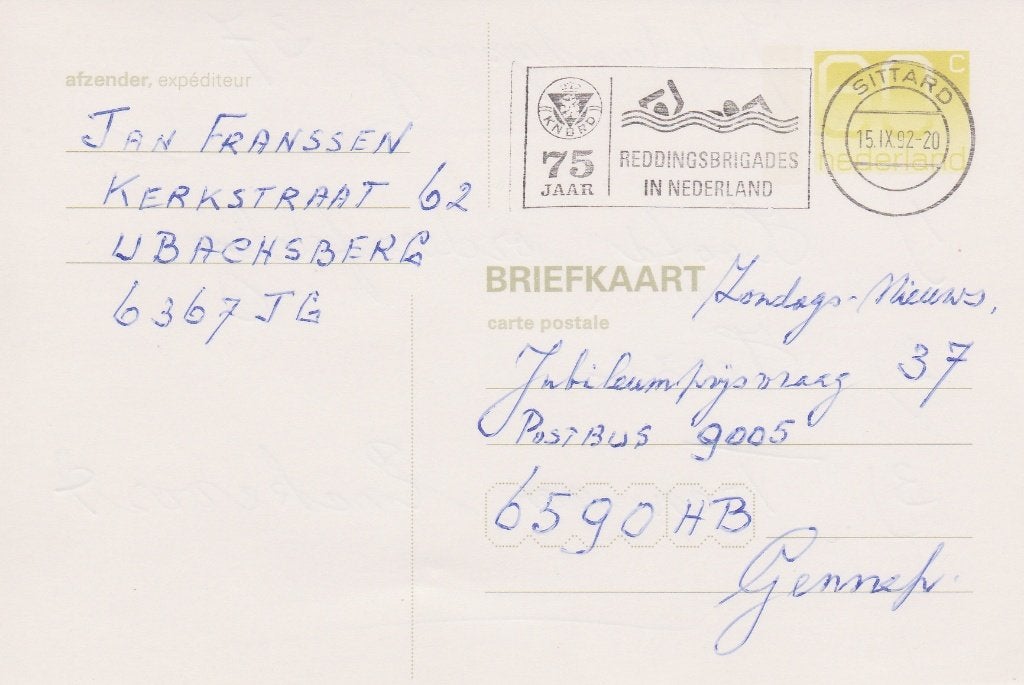 afzender, expéditeur
JAN FRANSSEN
KERKSTRAAT 62
UBACHSBERG
6367 JG
KNBRD
75
JAAR
REDDINGSBRIGADES
IN NEDERLAND
SITTARD
15.IX.92-20
c
nederland
BRIEFKAART
carte postale
Zondags-Nieuws,
Jubileumprijsvraag 37
POSTBUS 9005
6590 HB
Gennep.